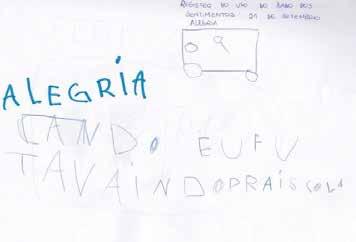 REGISTRO DO USO DO DADO DOS
SENTIMENTOS 21 DE SETEMBRO
ALEGRIA
ALEGRÍA
CANDO EU FU
TAVAINDOPRAISCOLA